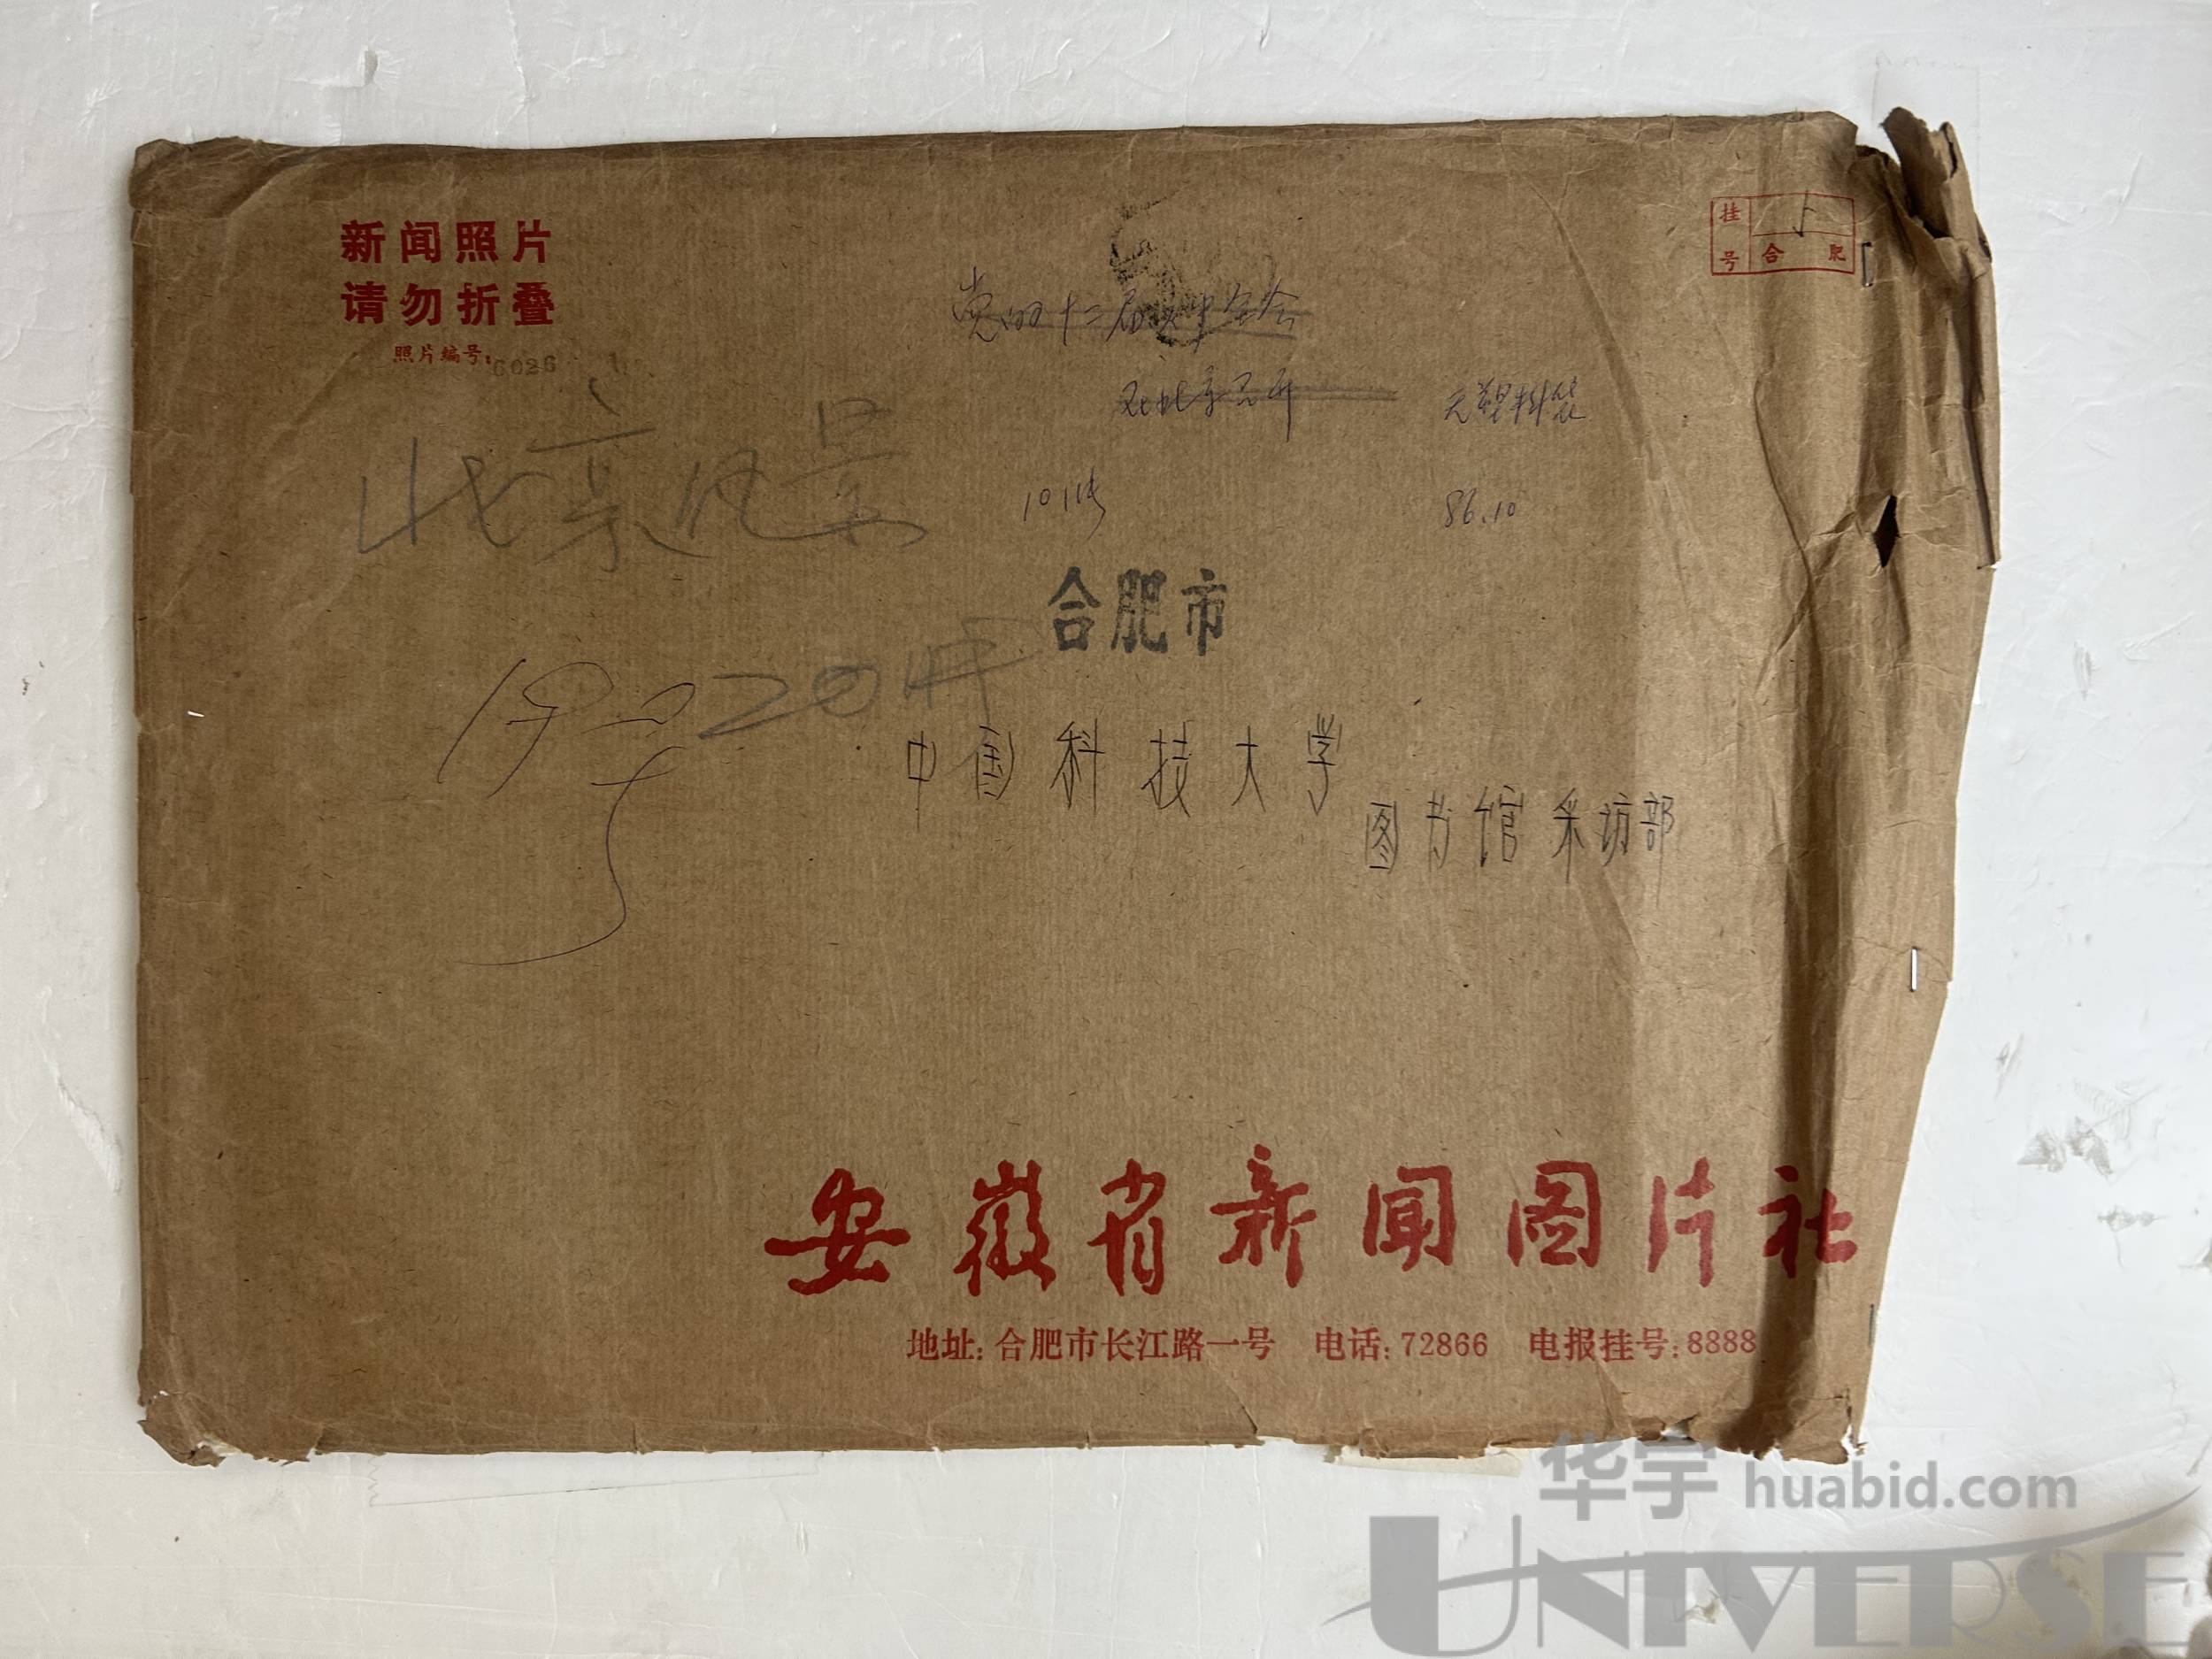 新闻照片
请勿折叠
照片编号:6026
挂号
合肥
党的十二届六中全会
在北京召开
无塑料袋
北京风景
10张
86.10
合肥市
20张
中国科技大学
图书馆采访部
安徽省新闻图片社
地址:合肥市长江路一号 电话:72866 电报挂号:8888
华宇 huabid.com
UNIVERSE